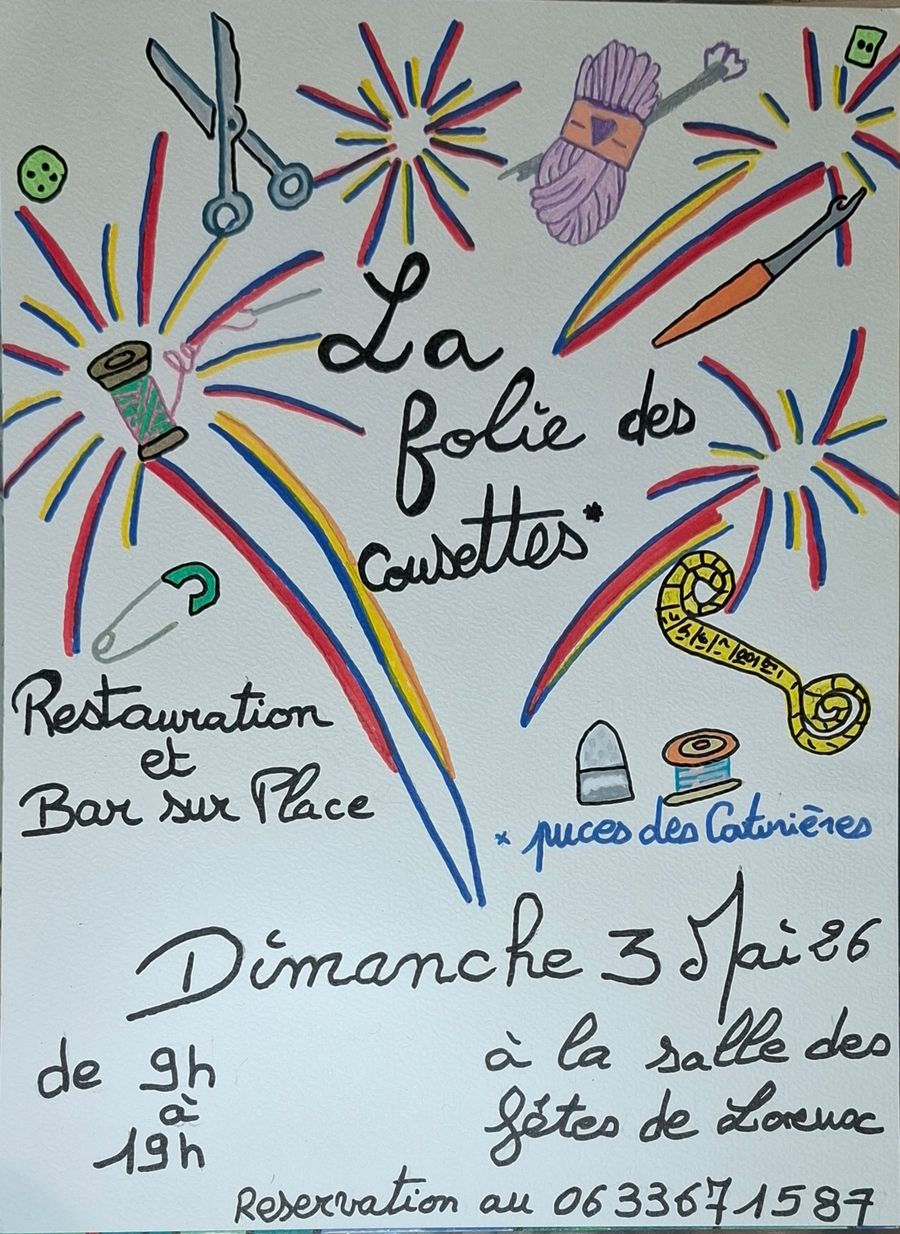 La
folie des
cousettes*
Restauration
et
Bar sur Place
* puces des Couturières
Dimanche 3 Mai 26
de 9h
à
19h
à la salle des
fêtes de
Reservation au 0633671587